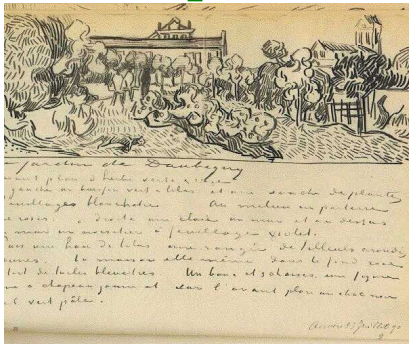 jardin de Daubigny
avant plan d'herbe verte &
gauche un buisson vert & lilas et une souche de plantes
feuillages blanchâtres Au milieu un parterre
roses à droite une claie un mur et au dessus
mur un noisetier à feuillage violet.
une haie de lilas une rangée de tilleuls arrondis
jaunes. La maison elle même dans le fond rose
toit de tuiles bleuâtres Un banc et 3 chaises, une figure
à chapeau jaune et sur l'avant plan un chat noir
vert pâle.